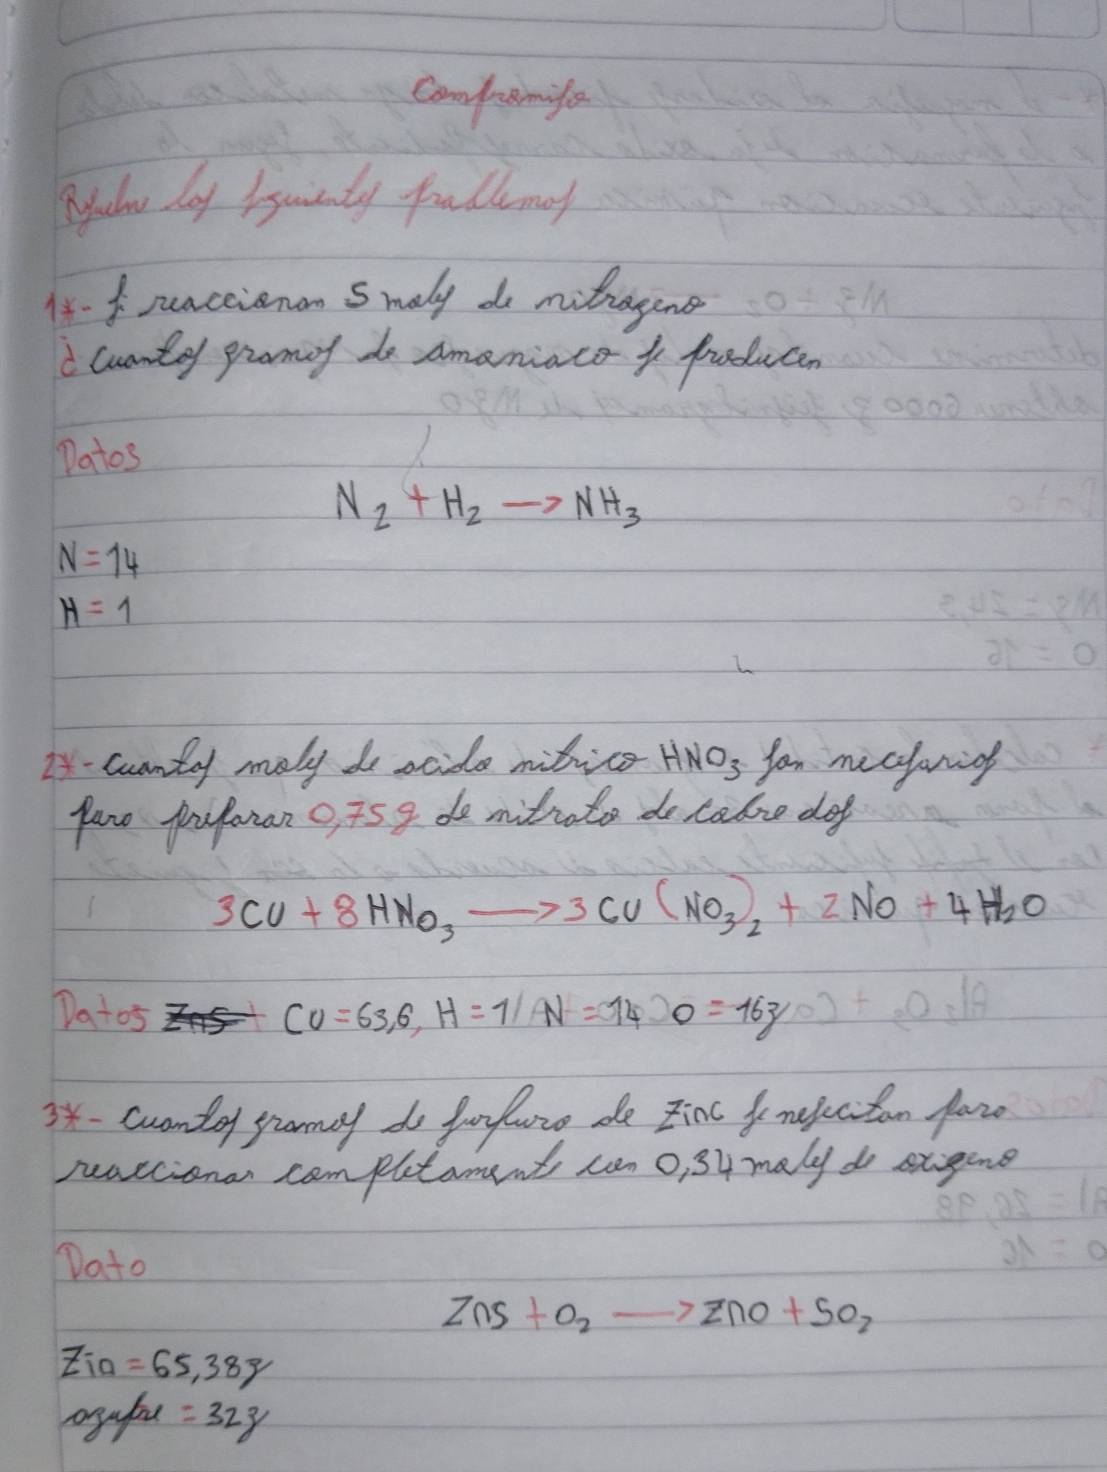 Compromiso
Resuelve los siguientes problemas
1*- si reaccionan 5 moles de nitrogeno
¿ cuantos gramos de amoniaco se producen
Datos
N₂ + H₂ → NH₃
N = 14
H = 1
2*- cuantos moles de acido nitrico HNO₃ son necesarios
para preparar 0,75g de nitrato de cobre dos
3CU + 8HNO₃ → 3CU(NO₃)₂ + 2NO + 4H₂O
Datos CU = 63,6, H = 1/ N = 14 O = 16g
3*- cuantos gramos de surfuro de Zinc se nesecitan para
reaccionar completamente con 0,34 moles de oxigeno
Dato
ZnS + O₂ → ZnO + SO₂
Zin = 65,38g
azufre = 32g